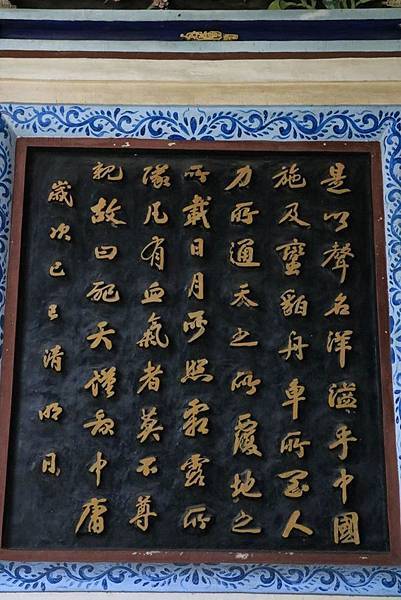 是以聲名洋溢乎中國
施及蠻貊舟車所至人
力所通天之所覆地之
所載日月所照霜露所
隊凡有血氣者莫不尊
親故曰配天謹錄中庸
歲次己清明月